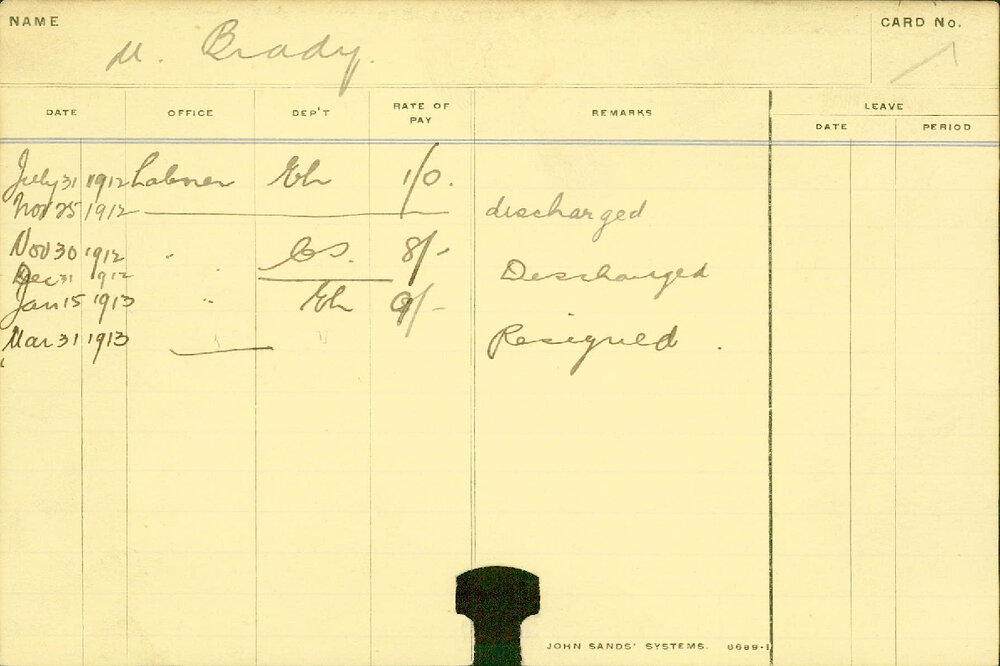 NAME M. Brady. CARD No. 1
LEAVE
DATE OFFICE DEP'T RATE OF PAY REMARKS DATE PERIOD
July 31 1912 Labourer Eh 1/0.
Nov 25 1912 discharged
Nov 30 1912 " CS. 8/-
Dec 31 1912 " Discharged
Jan 15 1913 " Eh 9/-
Mar 31 1913 " Resigned.
JOHN SANDS' SYSTEMS. 8689-1